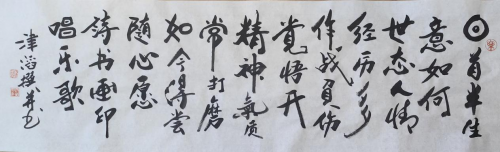 回首半生
意如何
世态人情
经历多
作战負伤
觉悟开
精神氣质
常打磨
如今得尝
随心愿
诗书画印
唱乐歌
津滔撰并书